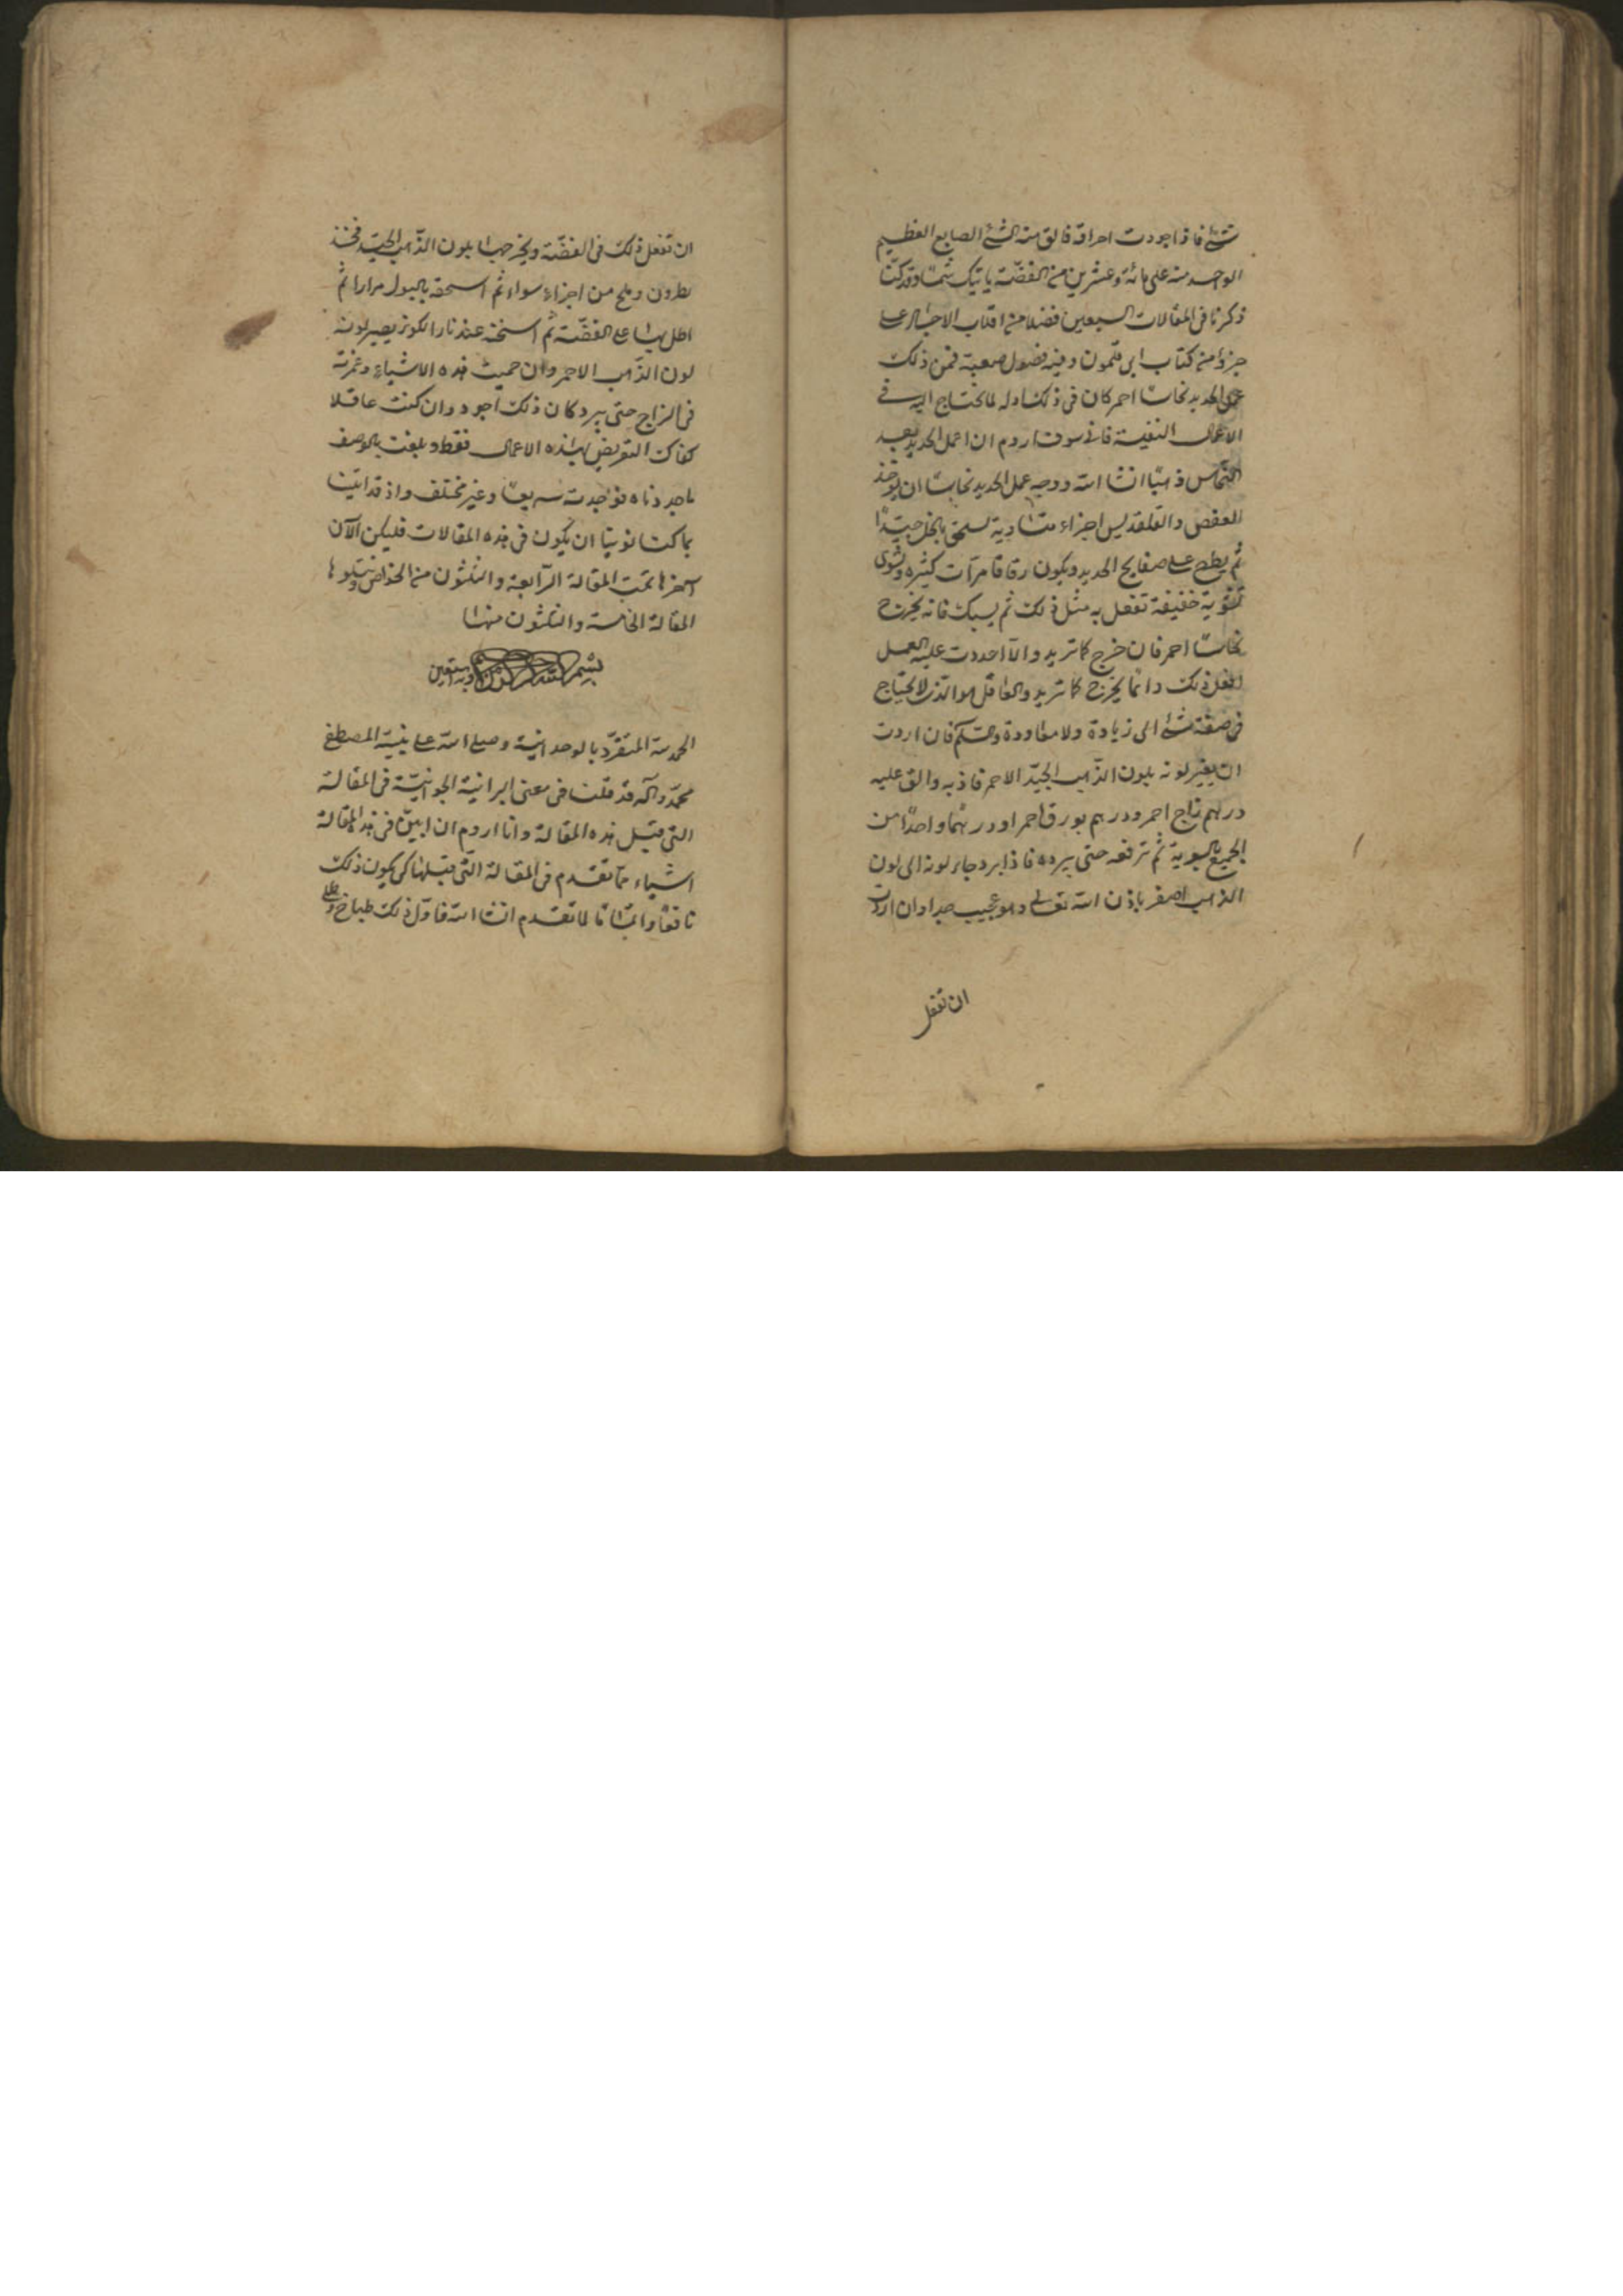 شئ فاذا جودت احراقه فالق منه الشئ الصابغ العظيم
الواحد منه على مائة وعشرين من الفضة يأتيك شمسا وقد كنا
ذكرنا فى المقالات السبعين فضلا من اقلاب الاجساد على
جزؤ من كتاب ابى قلمون وفيه فصول صعبة فمن ذلك
عمل الحديد نحاسا احمر كان فى ذلك اوله لما يحتاج اليه فى
الاعمال النفيسة فانى سوف اروم ان اعمل الحديد بعد
النحاس ذهبا انشا الله ووجه عمل الحديد نحاسا ان يؤخذ
العفص والقلقديس اجزاء متساوية يسحق بالخل جيدا
ثم يطرح على صفايح الحديد ويكون رقاقا مرات كثيره وتشوى
تشوية خفيفة تفعل به مثل ذلك ثم يسبك فانه يخرج
نحاسا احمر فان خرج كما تريد والا اعددت عليه العمل
افعل ذلك دائما يخرج كما تريد والعاقل هو الذى لا يحتاج
فى صفة شئ الى زيادة ولا معاودة والسلم فان اردت
ان يغير لونه بلون الذهب الجيد الاحمر فاذبه والق عليه
درهم زاج احمر ودرهم بورق احمر او درهما واحدا من
الجميع بالسوية ثم ترفعه حتى يبرد فاذا برد جاء لونه الى لون
الذهب اصفر باذن الله تعالى وهو عجيب جدا وان اردت
ان تفعل
ان تفعل ذلك فى الفضة ويخرجها بلون الذهب الجيد فخذ
نطرون وملح من اجزاء سواء ثم اسحقه بالبول مرارا ثم
اطل بها على الفضة ثم اسخنه عند نار الكور يصير لونه
لون الذهب الاحمر وان حميت هذه الاشياء وغمرته
فى الزاج حتى يبرد كان ذلك اجود وان كنت عاقلا
كفاك التعريض بهذه الاعمال فقط وبلغت بالوصف
ما جردناه فوجدت سريعا وغير مختلف واذ قد اتينا
بما كنا نوينا ان يكون فى هذه المقالات فليكن الآن
آخرها تمت المقالة الرابعة والثلثون من الخواص ويتلوها
المقالة الخامسة والثلثون منها
بسم الله الرحمن الرحيم وبه نستعين
الحمد لله المتفرد بالوحدانية وصلى الله على نبيه المصطفى
محمد وآله قد قلنا فى معنى البرانية الجوانية فى المقالة
التى قبل هذه المقالة وانا اروم ان ابين فى هذه المقالة
اشياء مما تقدم فى المقالة التى قبلها كى يكون ذلك
نافعا واتماما لما تقدم انشا الله فاول ذلك طباخ